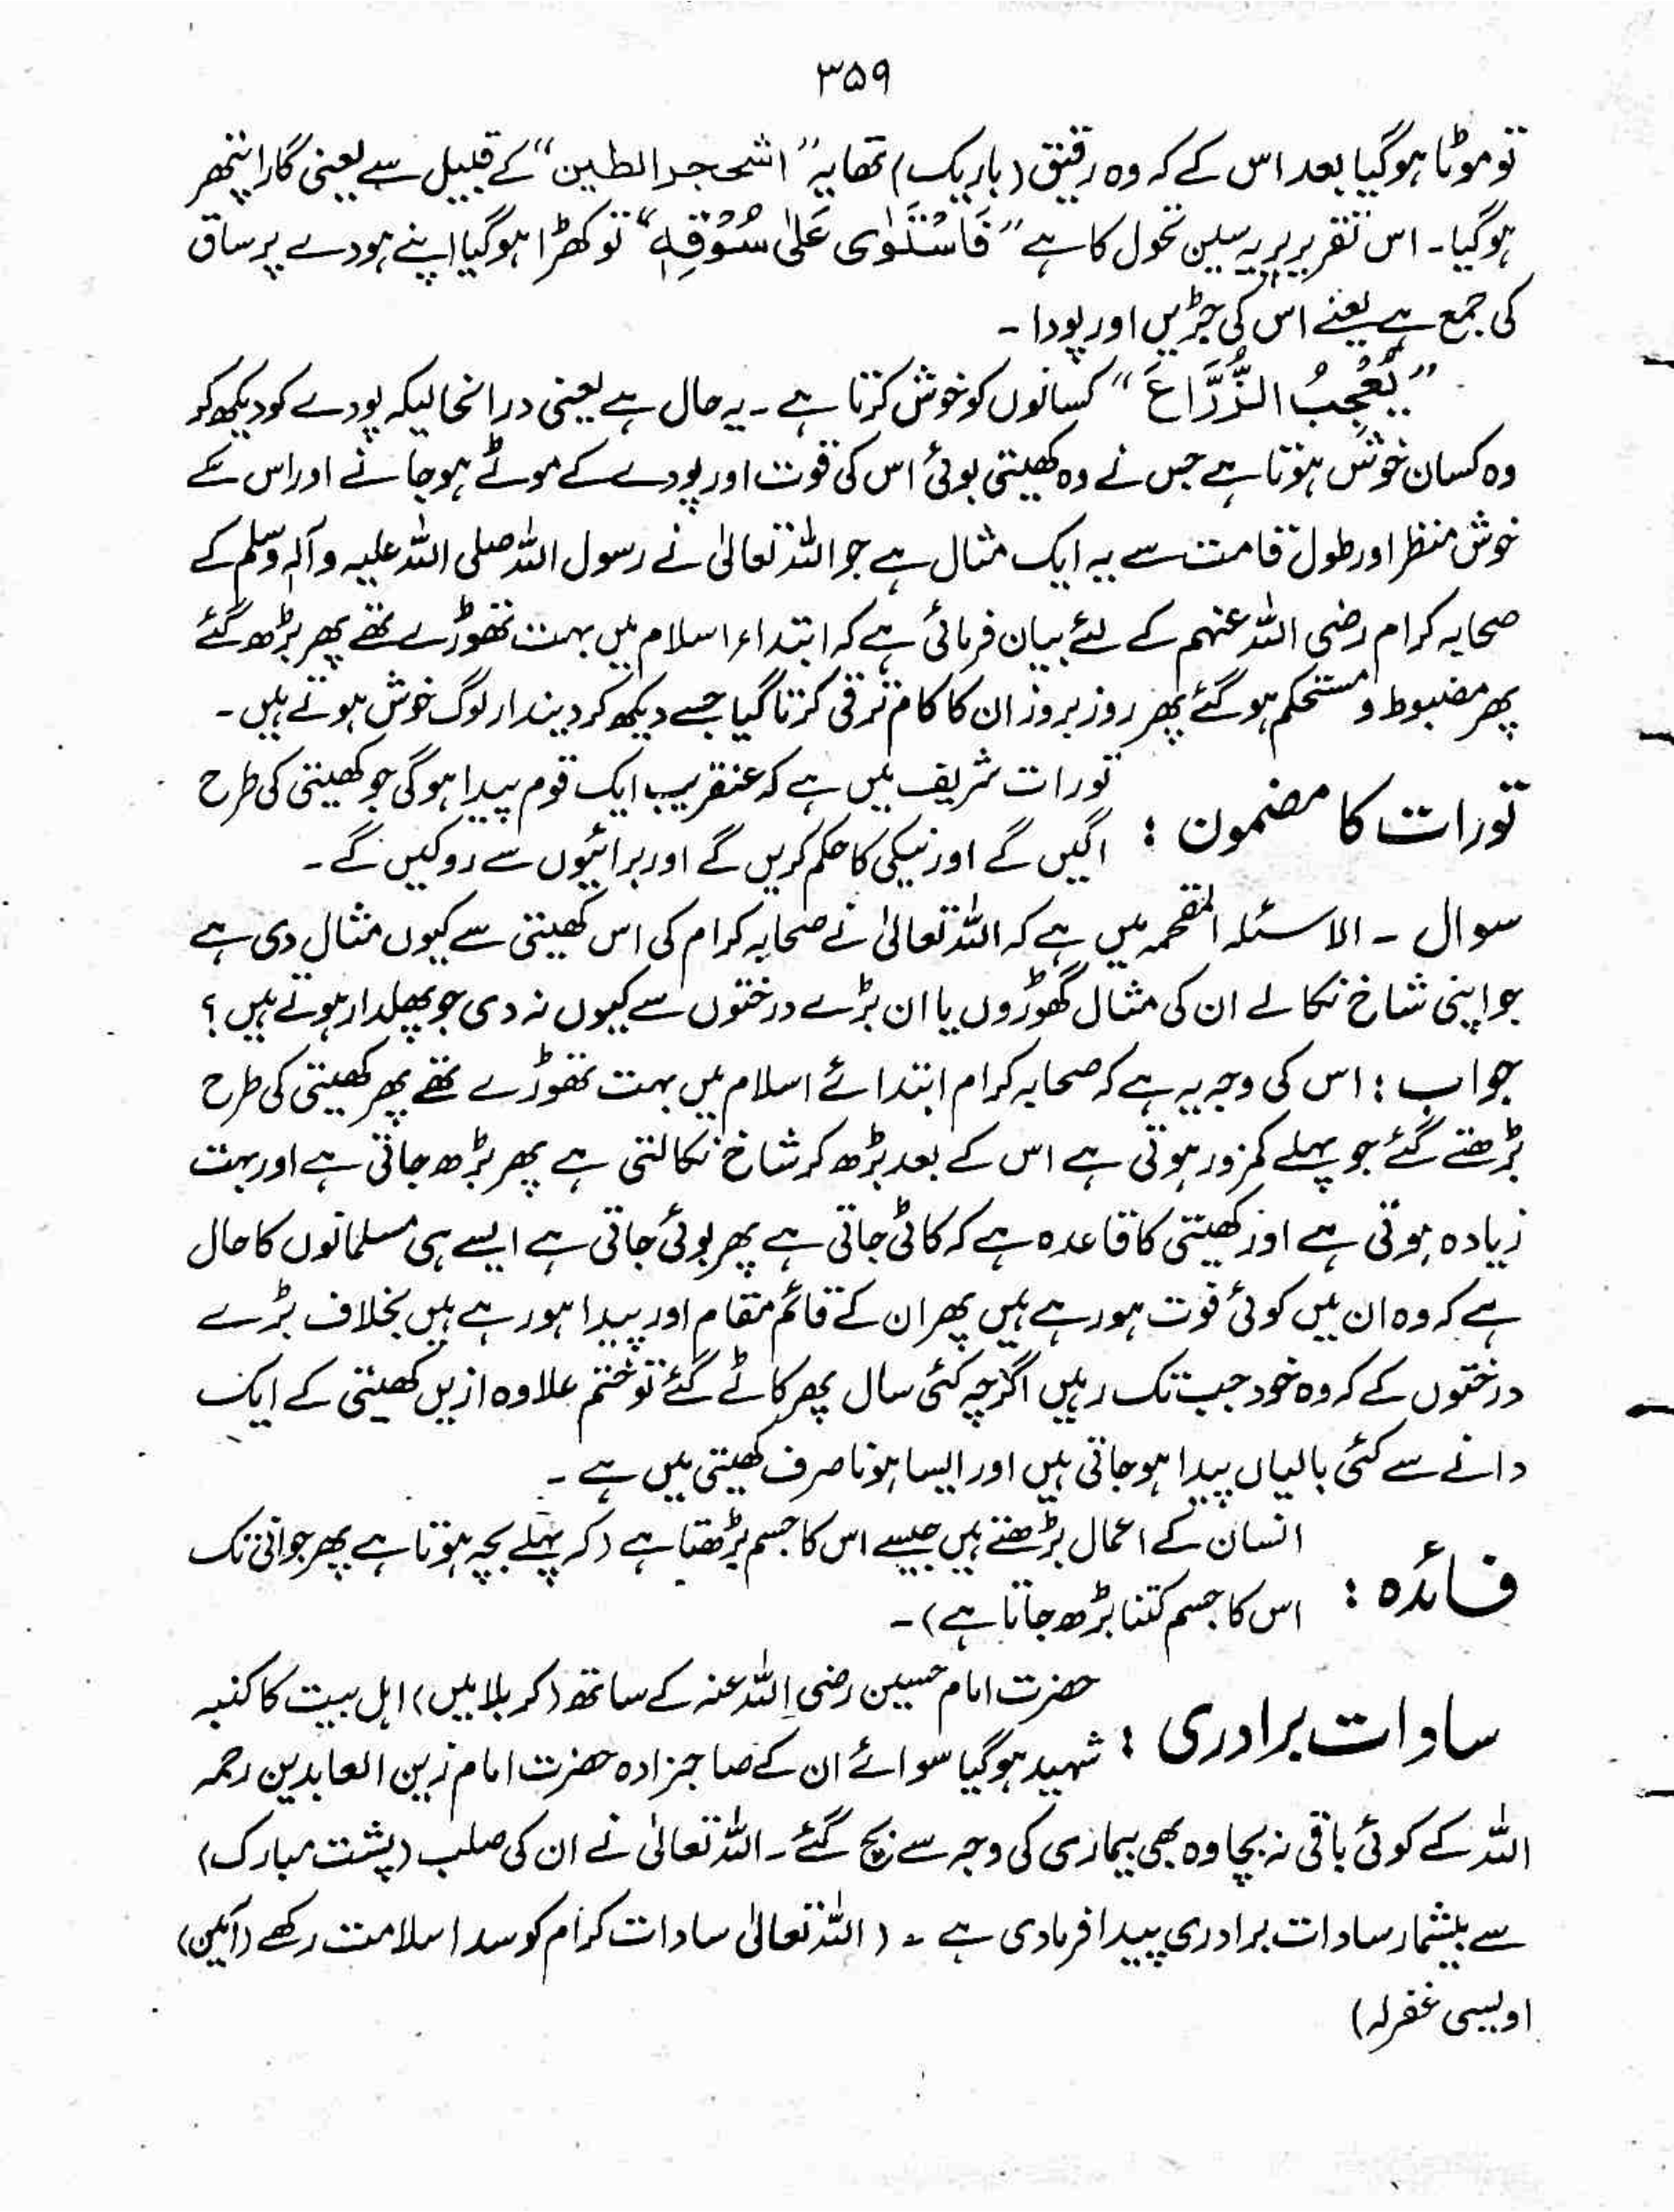 ۳۵۹
تو موٹا ہوگیا بعد اس کے کہ وہ رقیق (باریک) تھا یہ “اشحجر الطین” کے قبیل سے یعنی گارا پتھر
ہوگیا۔ اس تقریر پر یہ سین تحول کا ہے “فَاسْتَوٰی عَلٰی سُوْقِہٖ” تو کھڑا ہوگیا اپنے ہودے پر ساق
کی جمع ہے یعنے اس کی جڑیں اور پودا ۔
“یُعْجِبُ الزُّرَّاعَ” کسانوں کو خوش کرتا ہے ۔ یہ حال ہے یعنی درانحالیکہ پودے کو دیکھ کر
وہ کسان خوش ہوتا ہے جس نے وہ کھیتی بوئی اس کی قوت اور پودے کے موٹے ہو جانے اور اس کے
خوش منظر اور طول قامت سے یہ ایک مثال ہے جو اللہ تعالیٰ نے رسول اللہ صلی اللہ علیہ وآلہٖ وسلم کے
صحابہ کرام رضی اللہ عنہم کے لئے بیان فرمائی ہے کہ ابتداء اسلام میں بہت تھوڑے تھے پھر بڑھ گئے
پھر مضبوط و مستحکم ہو گئے پھر روز بروز ان کا کام ترقی کرتا گیا جسے دیکھ کر دیندار لوگ خوش ہوتے ہیں ۔
تورات کا مضمون : تورات شریف میں ہے کہ عنقریب ایک قوم پیدا ہوگی جو کھیتی کی طرح
اگیں گے اور نیکی کا حکم کریں گے اور برائیوں سے روکیں گے ۔
سوال ۔ الاسئلہ المقحمہ میں ہے کہ اللہ تعالیٰ نے صحابہ کرام کی اس کھیتی سے کیوں مثال دی ہے
جو اپنی شاخ نکالے ان کی مثال گھوڑوں یا ان بڑے درختوں سے کیوں نہ دی جو پھلدار ہوتے ہیں ؟
جواب : اس کی وجہ یہ ہے کہ صحابہ کرام ابتدائے اسلام میں بہت تھوڑے تھے پھر کھیتی کی طرح
بڑھتے گئے جو پہلے کمزور ہوتی ہے اس کے بعد بڑھ کر شاخ نکالتی ہے پھر بڑھ جاتی ہے اور بہت
زیادہ ہوتی ہے اور کھیتی کا قاعدہ ہے کہ کاٹی جاتی ہے پھر بوئی جاتی ہے ایسے ہی مسلمانوں کا حال
ہے کہ وہ ان میں کوئی فوت ہو رہے ہیں پھر ان کے قائم مقام اور پیدا ہو رہے ہیں بخلاف بڑے
درختوں کے کہ وہ خود جب تک رہیں اگرچہ کئی سال پھر کاٹے گئے تو ختم علاوہ ازیں کھیتی کے ایک
دانے سے کئی بالیاں پیدا ہو جاتی ہیں اور ایسا ہونا صرف کھیتی میں ہے ۔
فائدہ : انسان کے اعمال بڑھتے ہیں جیسے اس کا جسم بڑھتا ہے (کہ پہلے بچہ ہوتا ہے پھر جوانی تک
اس کا جسم کتنا بڑھ جاتا ہے) ۔
ساوات برادری : حضرت امام حسین رضی اللہ عنہ کے ساتھ (کربلا میں) اہل بیت کا کنبہ
شہید ہوگیا سوائے ان کے صاحبزادہ حضرت امام زین العابدین رحمہ
اللہ کے کوئی باقی نہ بچا وہ بھی بیماری کی وجہ سے بچ گئے ۔ اللہ تعالیٰ نے ان کی صلب (پشت مبارک)
سے بیشمار سادات برادری پیدا فرمادی ہے ۔ (اللہ تعالیٰ سادات کرام کو سدا سلامت رکھے (آمین)
اویسی غفرلہ)